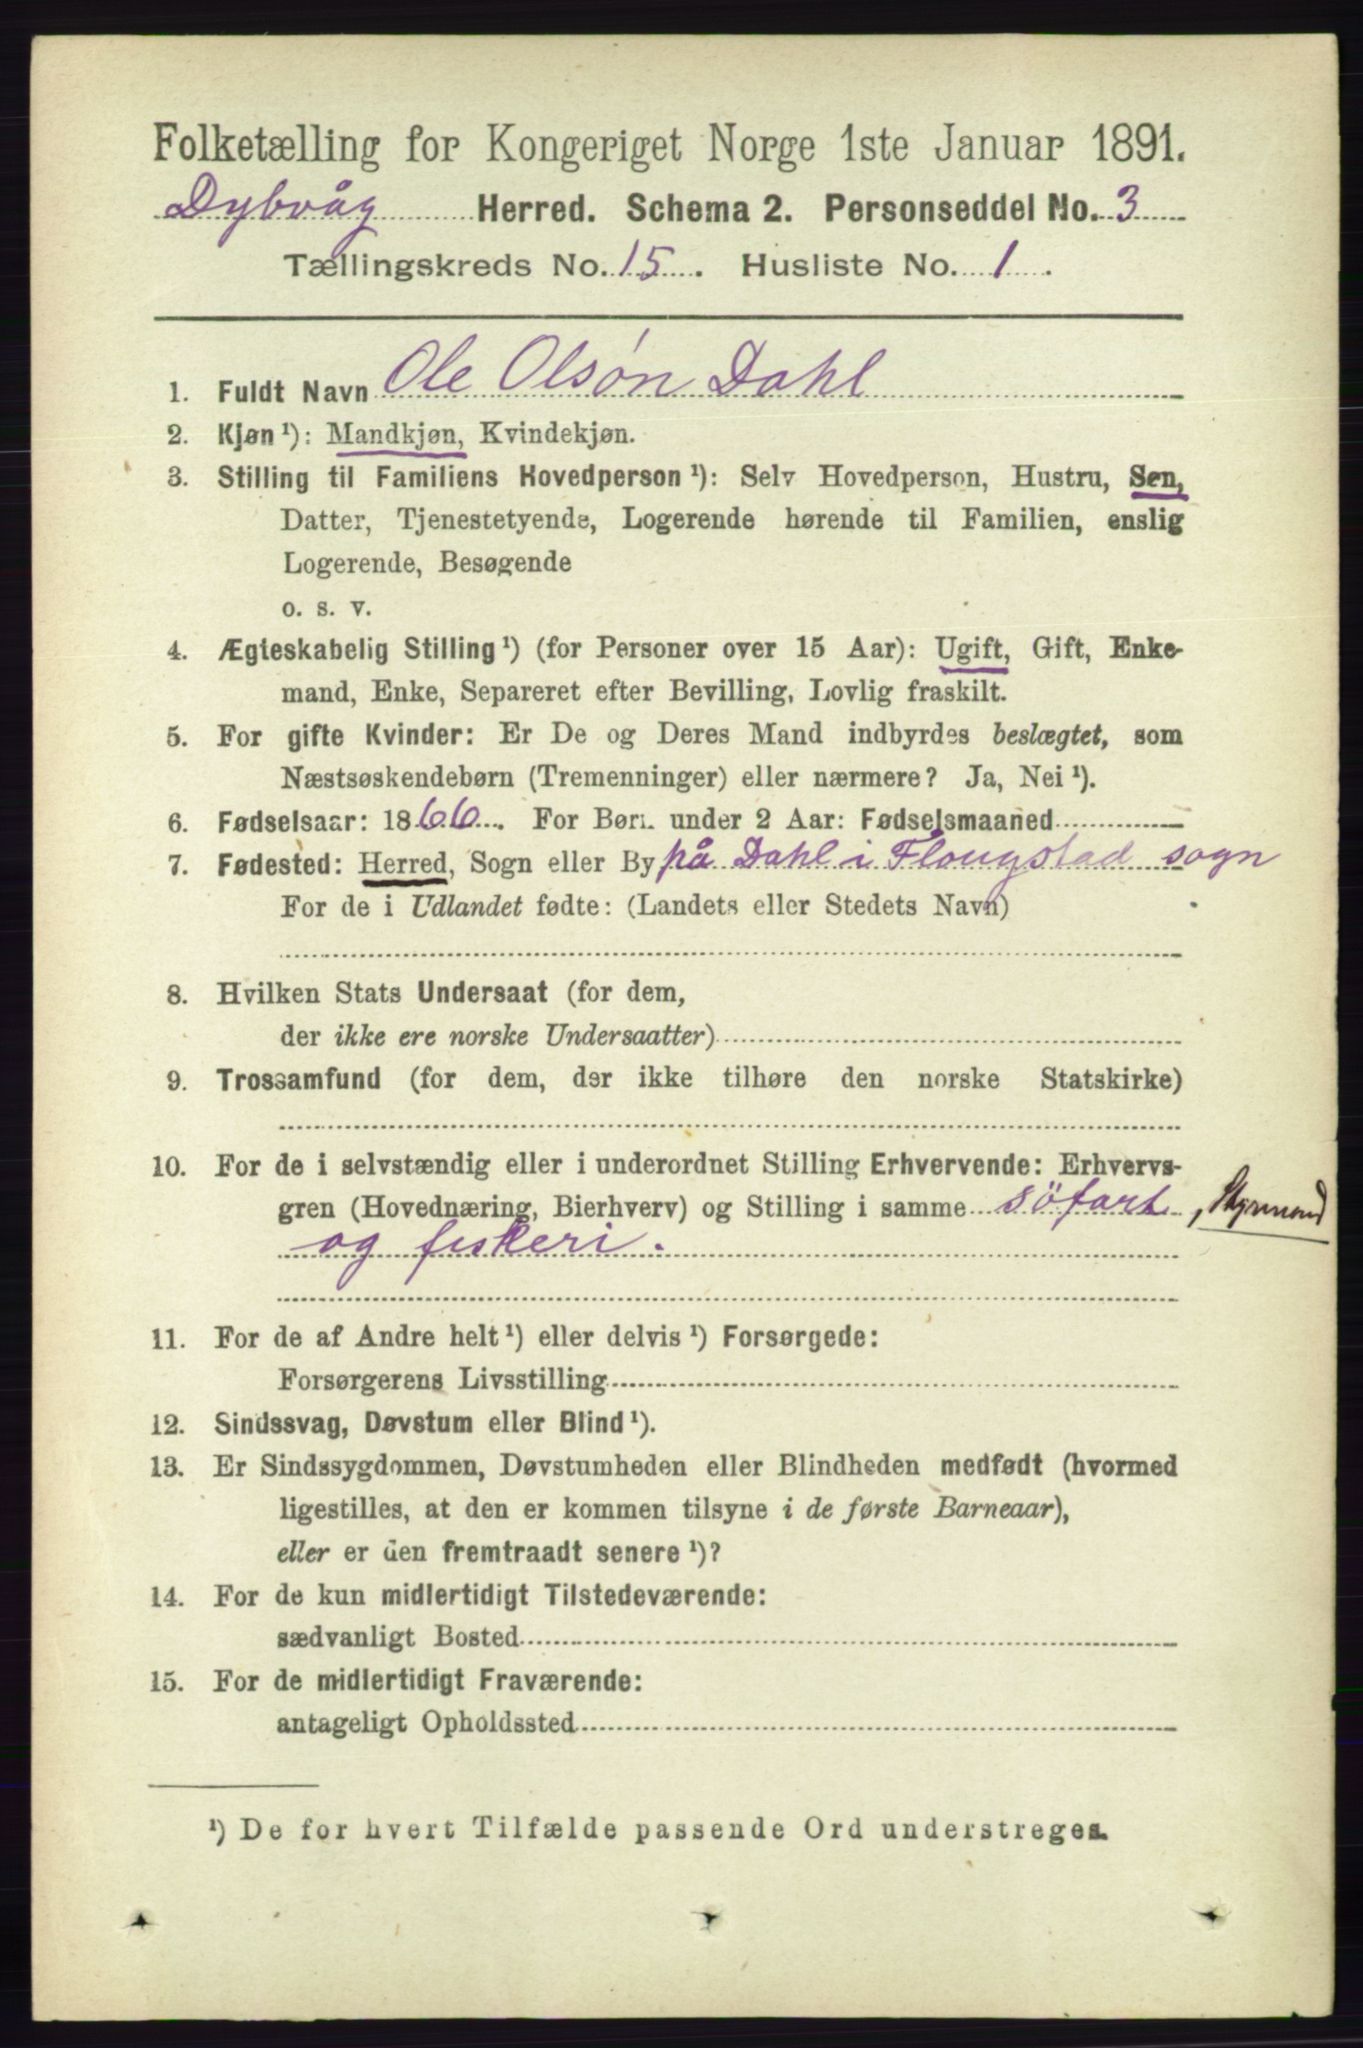 Folketælling for Kongeriget Norge 1ste Januar 1891.
Dybvåg Herred. Schema 2. Personseddel No. 3
Tællingskreds No. 15. Husliste No. 1.
1. Fuldt Navn Ole Olsøn Dahl
2. Kjøn¹): Mandkjøn, Kvindekjøn.
3. Stilling til Familiens Hovedperson¹): Selv Hovedperson, Hustru, Søn,
Datter, Tjenestetyende, Logerende hørende til Familien, enslig
Logerende, Besøgende
o. s. v.
4. Ægteskabelig Stilling¹) (for Personer over 15 Aar): Ugift, Gift, Enke-
mand, Enke, Separeret efter Bevilling, Lovlig fraskilt.
5. For gifte Kvinder: Er De og Deres Mand indbyrdes beslægtet, som
Næstsøskendebørn (Tremenninger) eller nærmere? Ja, Nei¹).
6. Fødselsaar: 1866. For Børn under 2 Aar: Fødselsmaaned
7. Fødested: Herred, Sogn eller By på Dahl i Flougstad sogn
For de i Udlandet fødte: (Landets eller Stedets Navn)
8. Hvilken Stats Undersaat (for dem,
der ikke ere norske Undersaatter)
9. Trossamfund (for dem, der ikke tilhøre den norske Statskirke)
10. For de i selvstændig eller i underordnet Stilling Erhvervende: Erhvervs-
gren (Hovednæring, Bierhverv) og Stilling i samme søfart, Styrmand
og fiskeri.
11. For de af Andre helt¹) eller delvis¹) Forsørgede:
Forsørgerens Livsstilling
12. Sindssvag, Døvstum eller Blind¹).
13. Er Sindssygdommen, Døvstumheden eller Blindheden medfødt (hvormed
ligestilles, at den er kommen tilsyne i de første Barneaar),
eller er den fremtraadt senere¹)?
14. For de kun midlertidigt Tilstedeværende:
sædvanligt Bosted
15. For de midlertidigt Fraværende:
antageligt Opholdssted
¹) De for hvert Tilfælde passende Ord understreges.